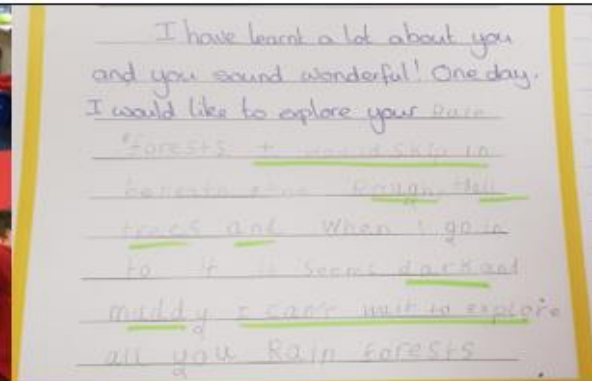 I have learnt a lot about you
and you sound wonderful! One day.
I would like to explore your Rain
forests + skip in
Rough tall
trees and When I go in
to it is seems dark and
muddy I can't wait to explore
all you Rain forests